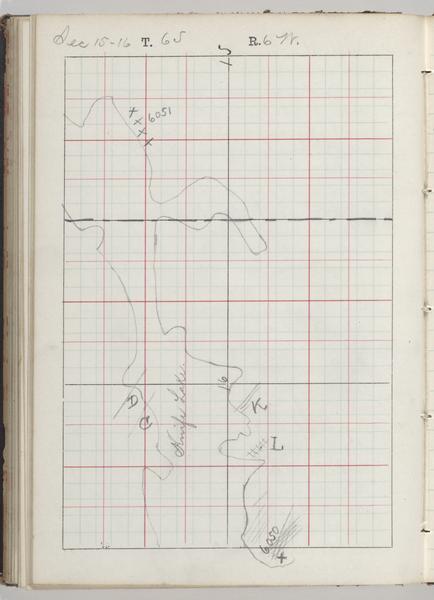 Sec 15-16 T. 65 R. 6 W.
6051
16
K
Knife Lake
L
6050